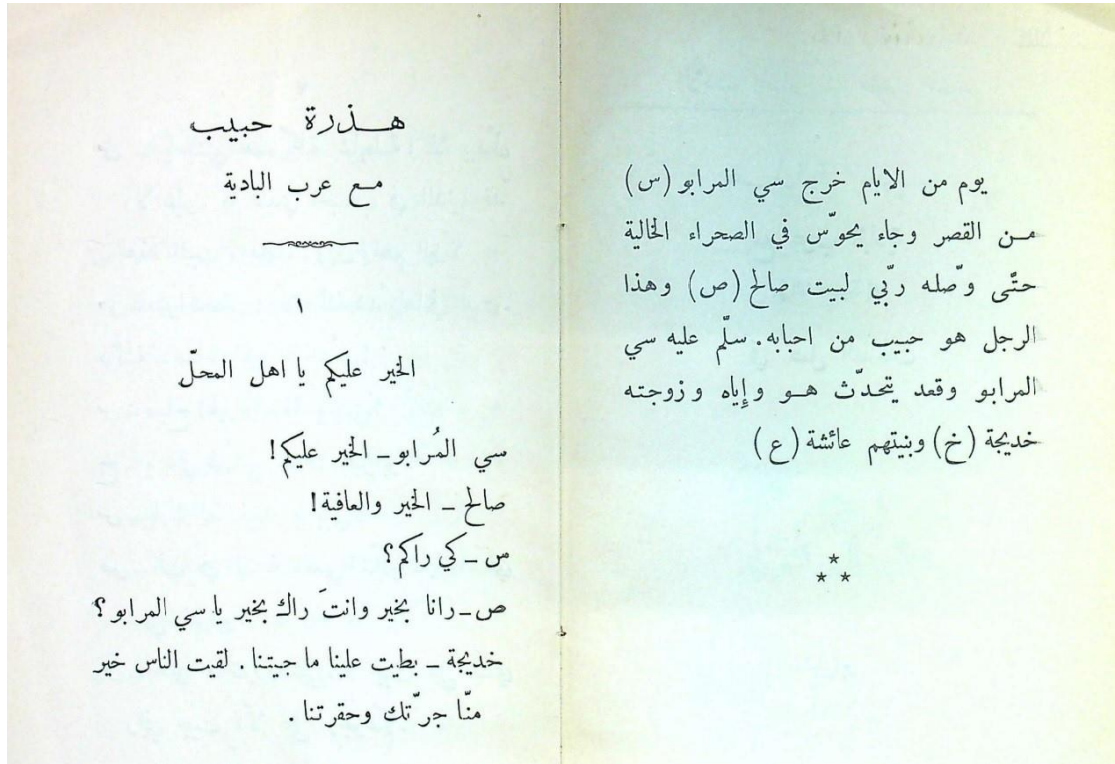 يوم من الايام خرج سي المرابو (س)
مـن القصر وجاء يحوّس في الصحراء الخالية
حتّى وصّله ربّي لبيت صالح (ص) وهذا
الرجل هو حبيب من احبابه. سلّم عليه سي
المرابو وقعد يتحدّث هـو وإياه وزوجته
خديجة (خ) وبنيتهم عائشة (ع)
*
* *
هـذرة حبيب
مـع عرب البادية
١
الخير عليكم يا اهل المحلّ
سي المُرابو ـ الخير عليكم!
صالح ـ الخير والعافية!
س ـ كي راكم؟
ص ـ رانا بخير وانتَ راك بخير يا سي المرابو؟
خديجة ـ بطيت علينا ما جيتنا. لقيت الناس خير
منّا جرّتك وحقرتنا.